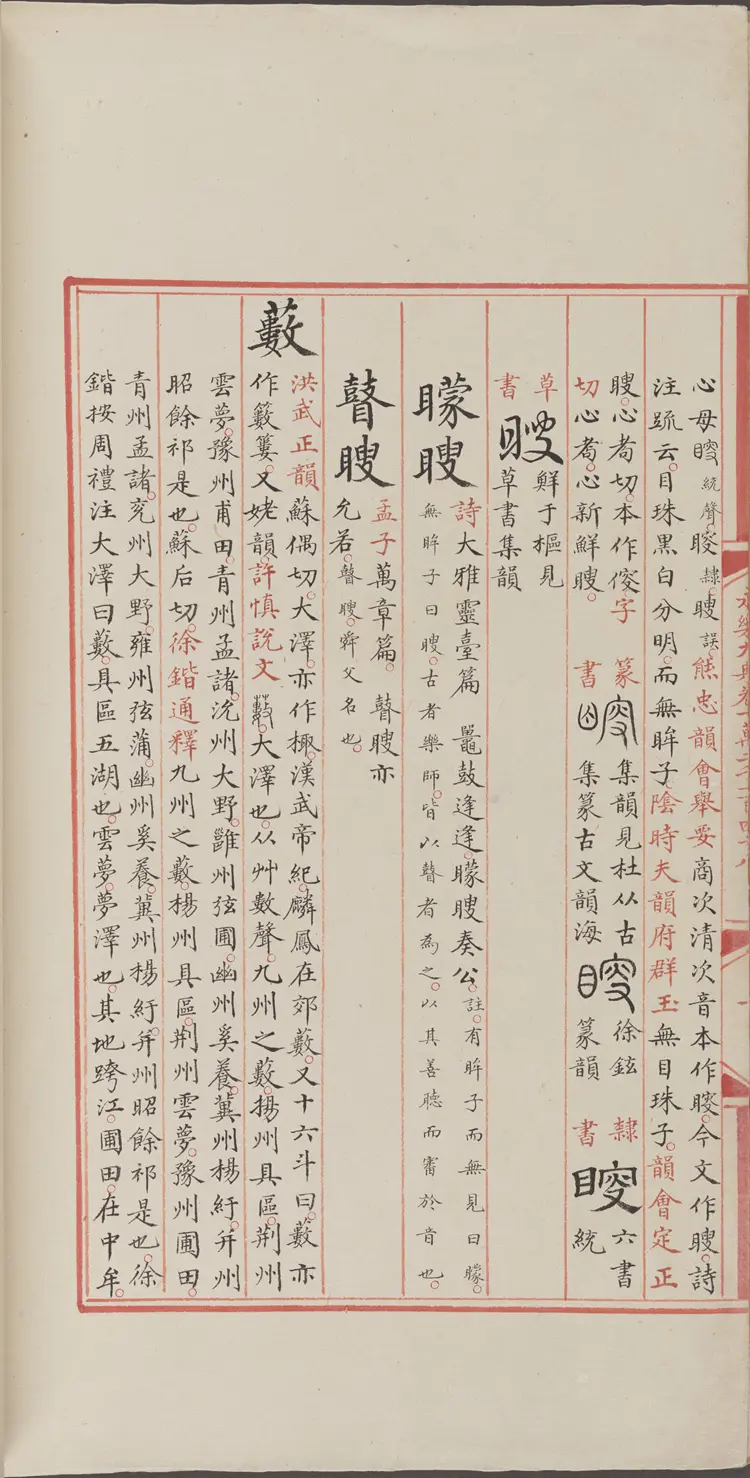 永樂大典卷一萬二千一百四十八
心母䁛統聲。䁛隸。瞍誤。熊忠韻會舉要商次清次音本作䁛。今文作瞍。詩
注䟽云。目珠黑白分明。而無眸子。陰時夫韻府群玉無目珠子。韻會定正
瞍。心耇切。本作傁。字
切心耇。心新鮮瞍。
篆書
集韻見杜从古
集篆古文韻海
徐鉉
篆韻
隸書
䁛
六書
統
草書
瞍
鮮于樞見
草書集韻
矇瞍
詩大雅靈臺篇 鼉鼓逢逢。矇瞍奏公。註。有眸子而無見曰矇。
無眸子曰瞍。古者樂師。皆以瞽者為之。以其善聽而審於音也。
瞽瞍
孟子萬章篇。瞽瞍亦
允若。瞽瞍。舜父名也。
藪
洪武正韻蘇偶切。大澤。亦作棷。漢武帝紀。麟鳳在郊藪。又十六斗曰藪亦
作籔簍。又姥韻。許慎說文藪。大澤也。从艸數聲。九州之藪。揚州具區。荆州
雲夢。豫州甫田。青州孟諸。沇州大野。雝州弦圃。幽州奚養。冀州楊紆。并州
昭餘祁是也。蘇后切。徐鍇通釋九州之藪。楊州具區。荆州雲夢。豫州圃田。
青州孟諸。兖州大野。雍州弦蒲。幽州奚養。冀州楊紆。并州昭餘祁是也。徐
鍇按周禮注大澤曰藪。具區五湖也。雲夢。夢澤也。其地跨江。圃田。在中牟。